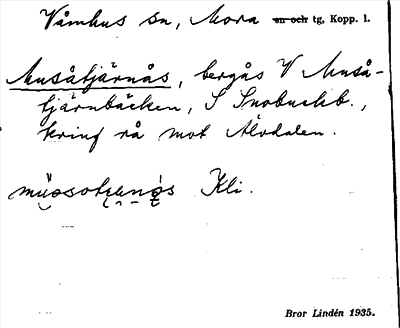 Våmhus sn, Mora sn och tg, Kopp. l.
Musåtjärnås, bergås V Muså-
tjärnbäcken, S Snobuchb.,
kring rå mot Älvdalen.
Kli.
Bror Lindén 1935.